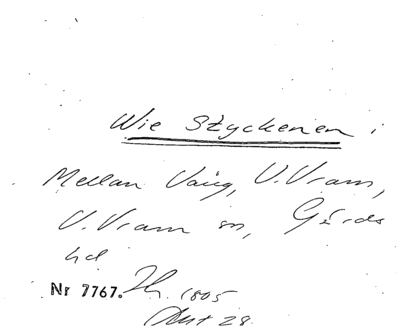 Wie Styckenen:
Mellan Vång, V. Vram,
V. Vram sn, Gärds
hd
Nr 7767. Jh. 1805
Akt 28